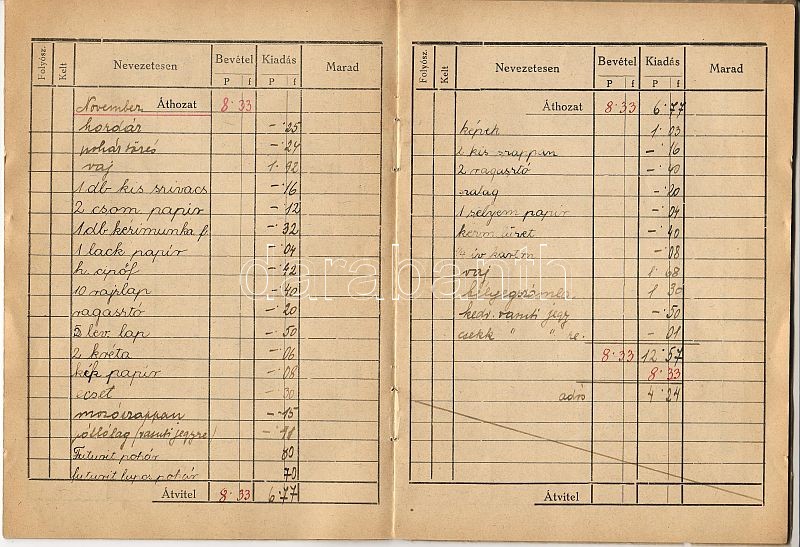 Folyósz. Kelt Nevezetesen Bevétel Kiadás Marad
P f P f
November Áthozat 8·33
hordár –·25
pohár törés –·24
vaj 1·92
1 db kis szivacs –·16
2 csom papír –·12
1 db kézimunka f. –·32
1 lack papír ·04
h. cipőf –·42
10 rajzlap –·40
ragasztó –·20
5 lev. lap –·50
2 kréta –·06
kép papír –·08
ecset –·30
mosószappan –·15
pótlólag (vasuti jegyre)
Futurit pohár 80
futurit lapos pohár 70
Átvitel 8·33 6·77
Folyósz. Kelt Nevezetesen Bevétel Kiadás Marad
P f P f
Áthozat 8·33 6·77
képek 1·03
kis szappan –·16
2 ragasztó –·40
–·20
1 selyem papír –·04
–·40
ív karton –·08
vaj 1·68
1 30
kedv. vasuti jegy –·50
csekk " " re. – 01
8·33 12·57
8·33
adós 4·24
Átvitel
darabanth